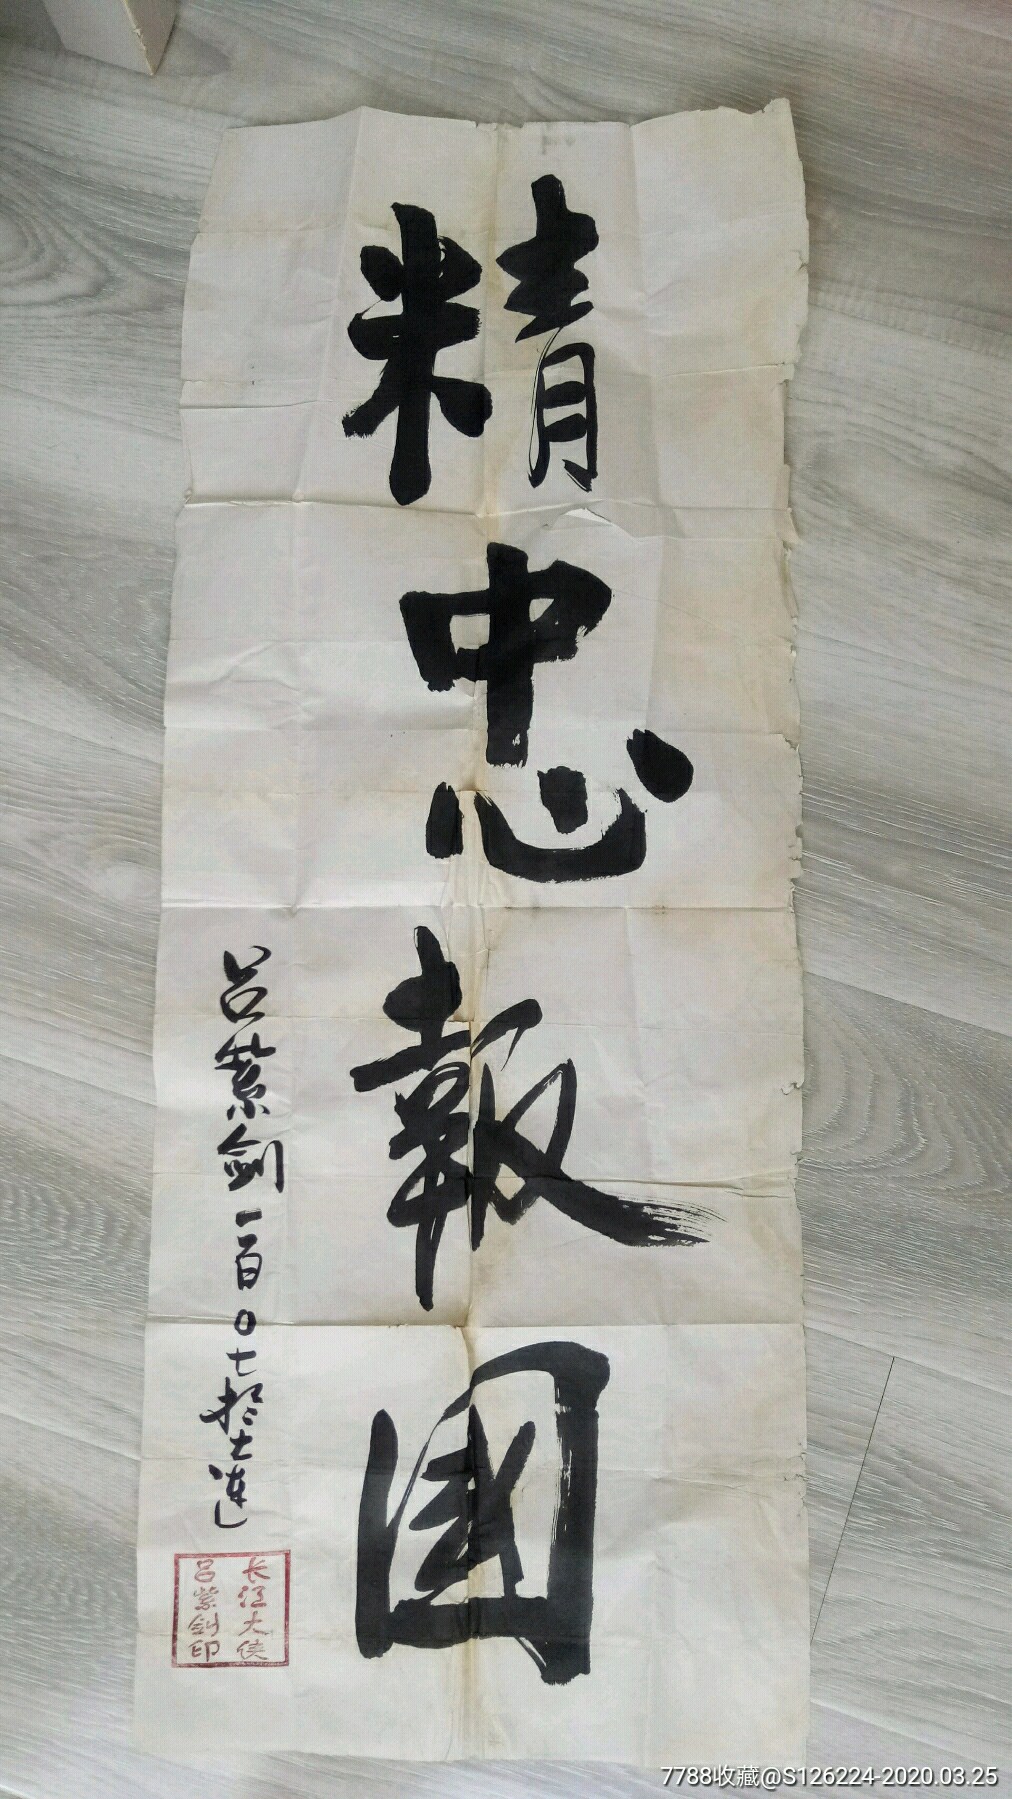 精忠報國
吕紫剑一百〇七於大连
长江大侠
吕紫剑印
7788收藏@S126224-2020.03.25